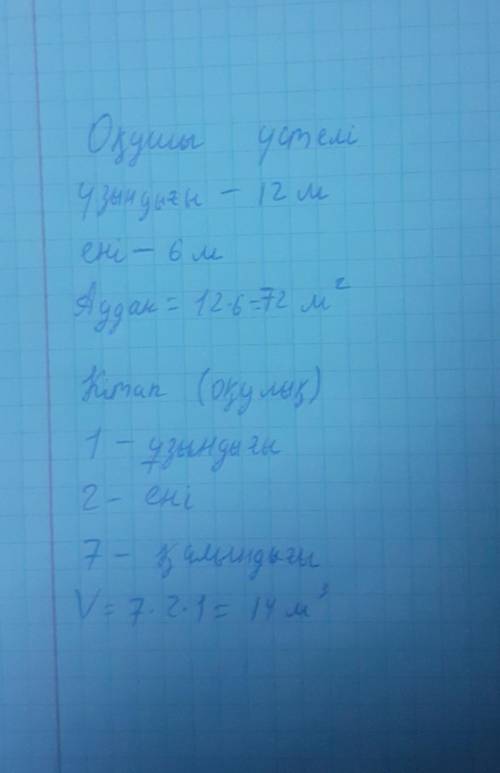 Оқушы үстелі
ұзындығы - 12 м
ені - 6 м
Аудан = 12·6=72 м²
Кітап (оқулық)
1 - ұзындығы
2 - ені
7 - қалындығы
V = 7·2·1 = 14 м³